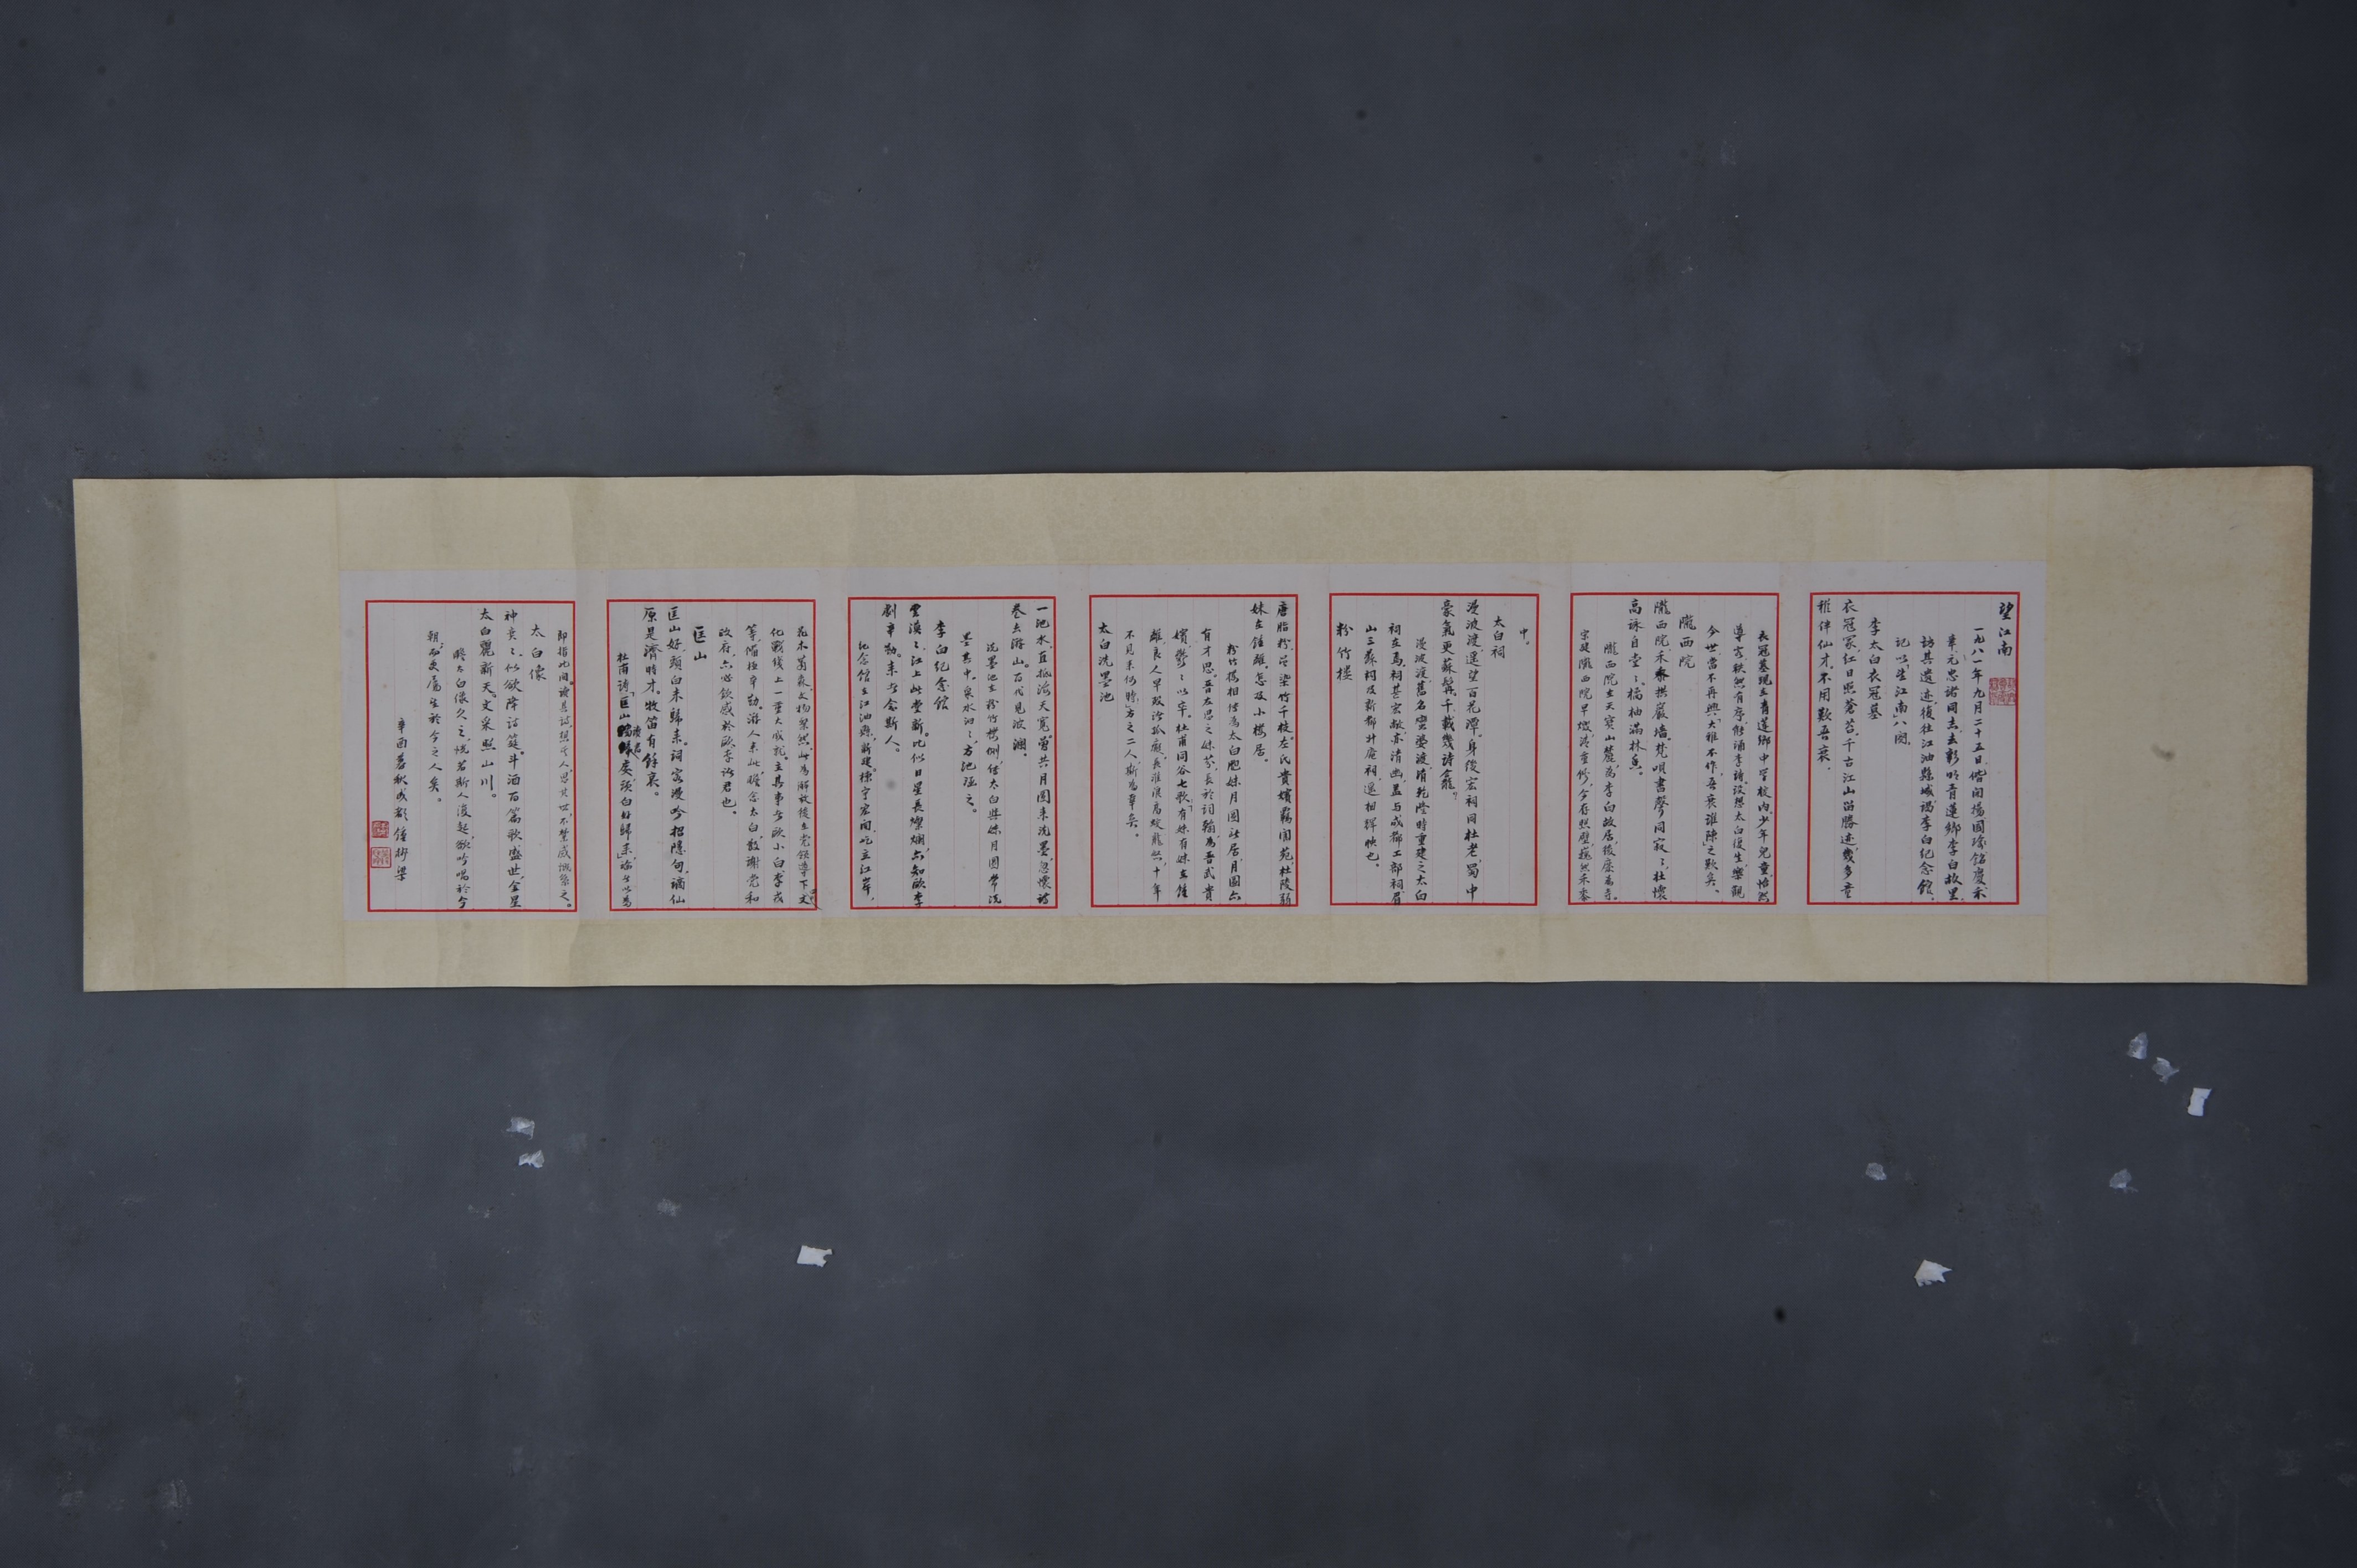 望江南
一九八一年九月二十五日,偕闻扬国璋铭慶禾
華元忠諸同志去彰明青蓮鄉李白故里,
訪其遺迹,復往江油縣城,謁李白纪念館,
记以「望江南」八阕。
李太白衣冠墓
衣冠冢,红日照蒼苔。千古江山留勝迹,幾多童
稚伴仙才。不用歎吾衰。
衣冠墓現在青蓮鄉中学校内。少年兒童,怡然
導客,秩然有序,能誦李詩。設想太白復生,樂觀
今世,當不再興「大雅不作,吾衰誰陳」之歎矣。
隴西院
隴西院,禾黍拱巖墙。梵唄書聲同寂々,杜懷
高詠自堂々。橘柚满林香。
隴西院在天寶山麓,為李白故居,後廢為寺。
宗建隴西院早燬,清重修,今存照壁,巍然禾黍
中。
太白祠
漫波渡,遥望百花潭。身後宏祠同杜老,蜀中
豪氣更蘇髯。千載幾詩龕。
漫波渡,舊名蠻婆渡,清乾隆時重建之太白
祠在焉。祠甚宏敞,亦清幽,盖与成都工部祠,眉
山三蘇祠及新都升庵祠,遥相輝映也。
粉竹楼
唐胎粉,漬染竹千枝。左氏貴嬪羁闺苑,杜陵弱
妹在鍾離。怎及小樓居。
粉竹樓相傳為太白胞妹月圆計居,月圆亦
有才思。晋左思之妹芬,長於詞翰,為晋武貴
嬪,鬱々以卒。杜甫同谷七歌,「有妹有妹在鍾
離,良人早殁诸孤癡,長淮浪高蛟龍怒,十年
不見来何時」。方之二人,斯為幸矣。
太白洗墨池
一池水,直抵海天寬。曾共月圆来洗墨,忽懷詩
卷去游山。百代見波澜。
洗墨池在粉竹樓侧,傳太白與妹月圆常洗
墨於中。泉水汩々,方池瓯之。
李白纪念馆
雲漠々,江上此堂新。比似日星長燦爛,亦知欧李
劇辛勤。来者念斯人。
纪念馆在江油縣,新建棟宇宏闊,屹立江岸,
花木蓊蔚,文物粲然,此為解放後在党领導下文
化戰线上一重大成就。主其事者欧小白,李戎
等,備極辛勤。游人来此,瞻念太白,敬謝党和
政府,亦必欽感於欧李诸君也。
匡山
匡山好,頭白未歸来。詞客漫吟招隱句,謫仙
原是濟時才。牧笛有餘哀。
杜甫诗「匡山讀書處,頭白好歸来」,論者以為
即指此间。讀其詩,想其人,思其世,不禁感慨繫之。
太白像
神奕々,似欲降詩筵。斗酒百篇歌盛世,金星
太白麗新天。文采照山川。
瞻太白像久之,恍若斯人復起,欲吟唱於今
朝,而更屬望於今之人矣。
辛酉暮秋成都鍾樹梁